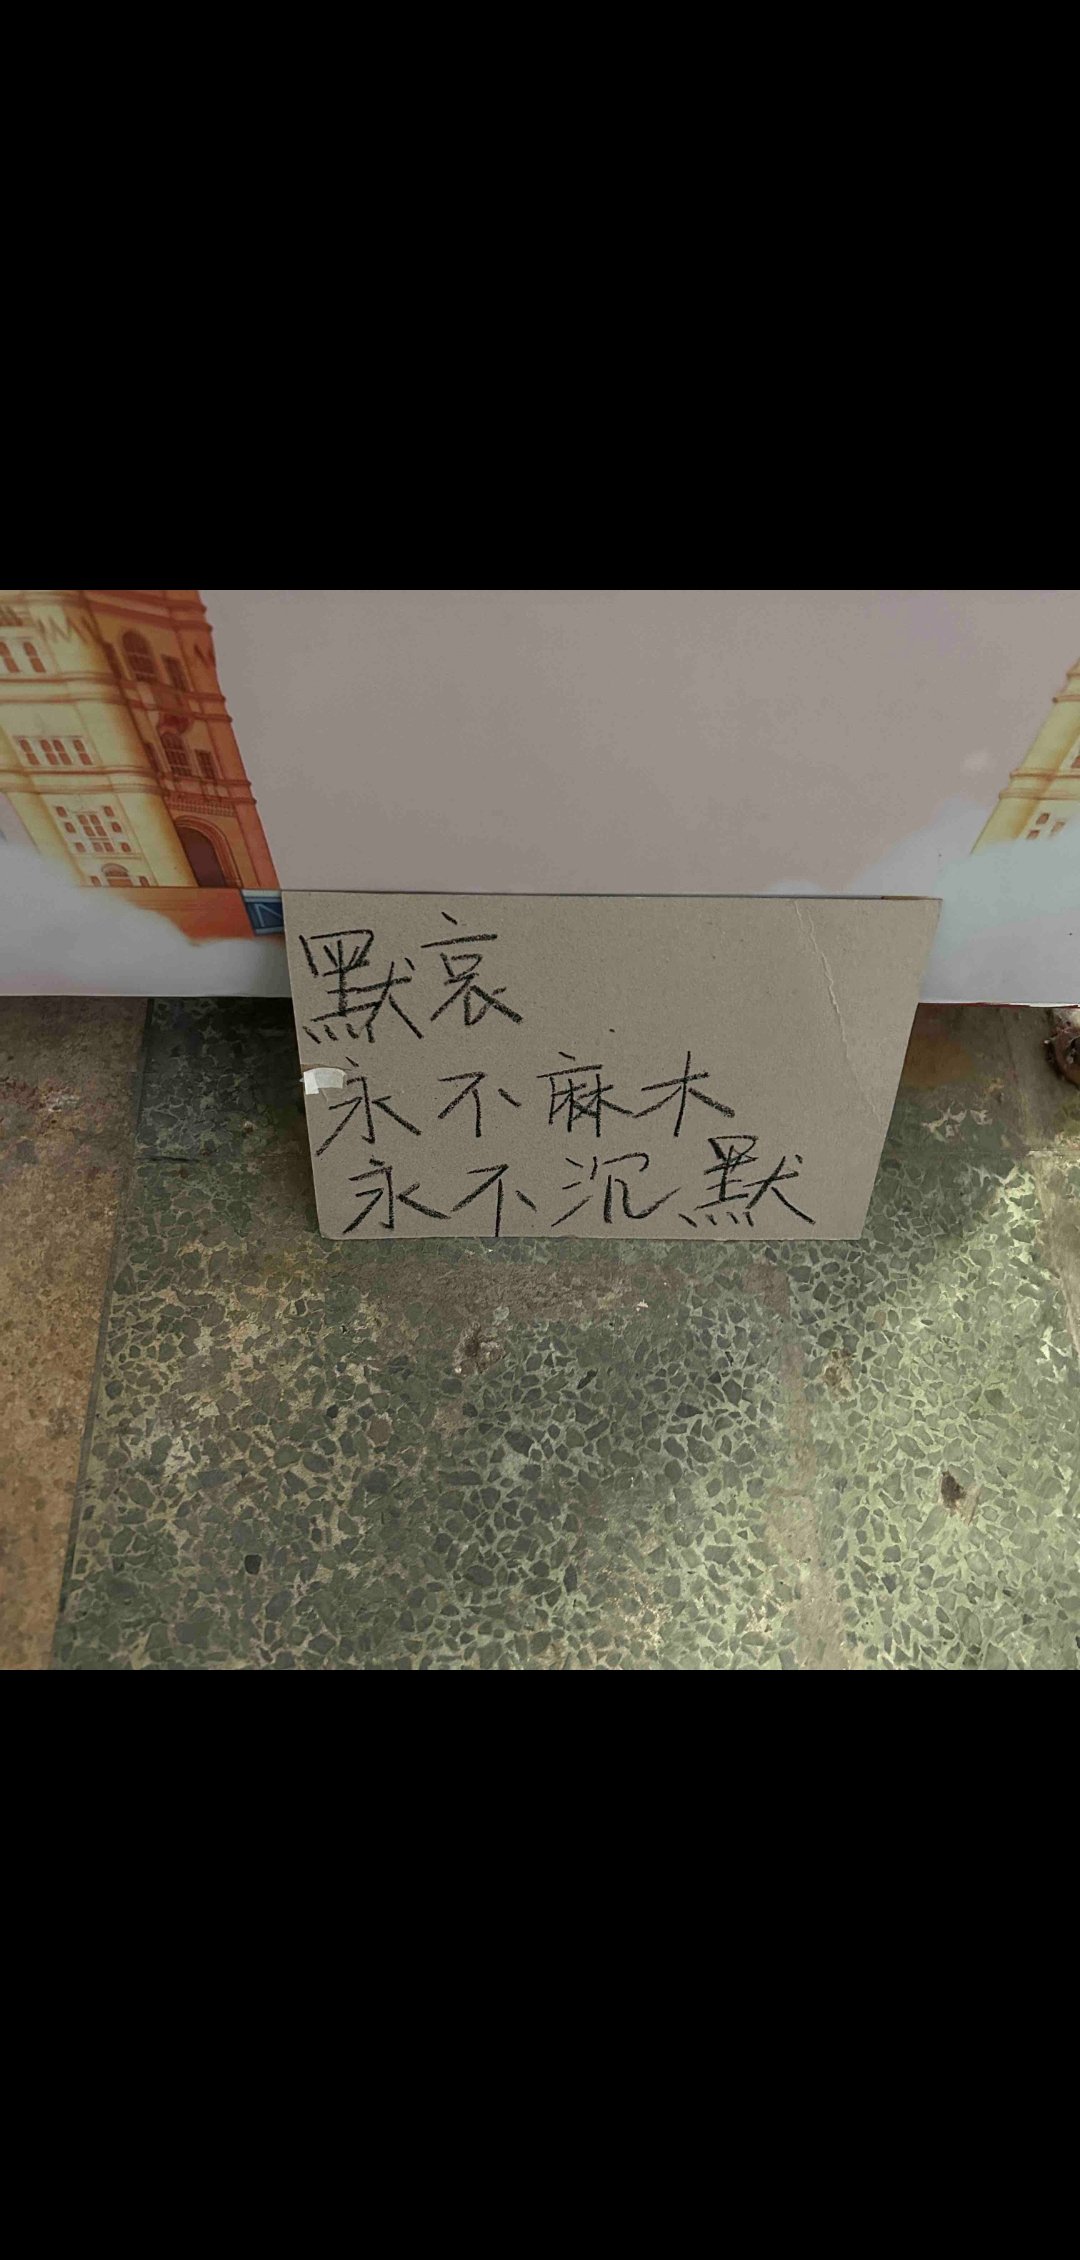 默哀
永不麻木
永不沉默